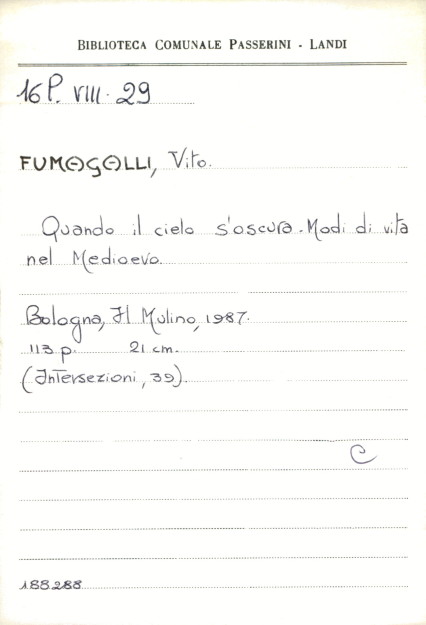 BIBLIOTECA COMUNALE PASSERINI - LANDI
16 P. VIII. 29
FUMAGALLI, Vito.
Quando il cielo s'oscura. Modi di vita
nel Medioevo.
Bologna, Il Mulino, 1987.
113 p. 21 cm.
(Intersezioni, 39).
C
188288